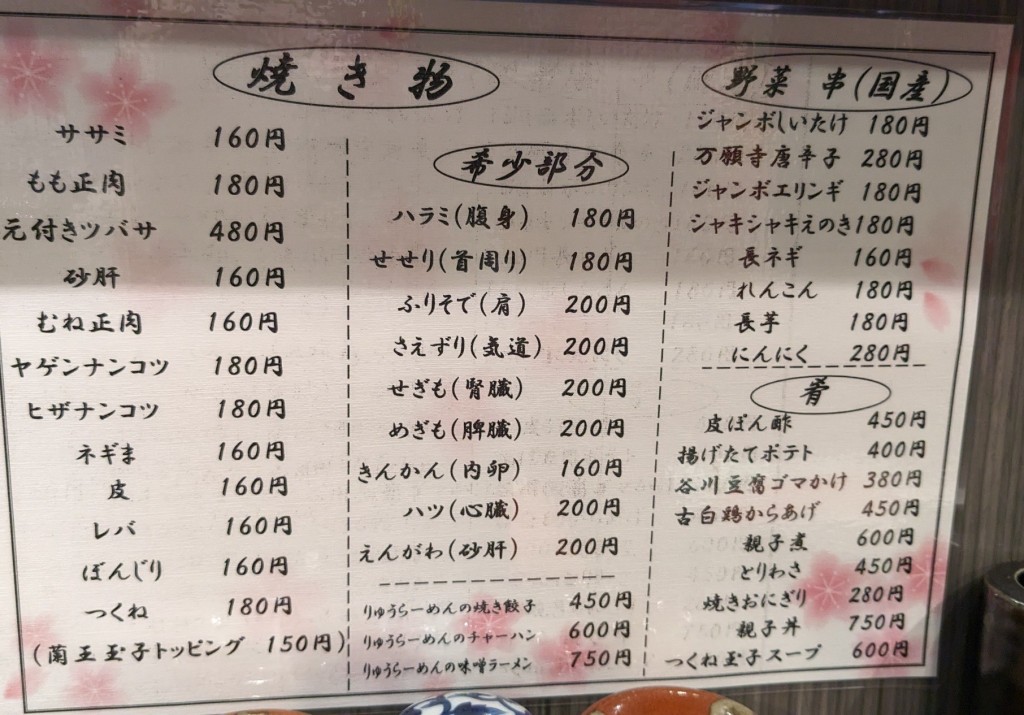 焼き物
ササミ 160円
もも正肉 180円
元付きツバサ 480円
砂肝 160円
むね正肉 160円
ヤゲンナンコツ 180円
ヒザナンコツ 180円
ネギま 160円
皮 160円
レバ 160円
ぼんじり 160円
つくね 180円
(蘭王玉子トッピング 150円)
希少部分
ハラミ(腹身) 180円
せせり(首周り) 180円
ふりそで(肩) 200円
さえずり(気道) 200円
せぎも(腎臓) 200円
めぎも(脾臓) 200円
きんかん(内卵) 160円
ハツ(心臓) 200円
えんがわ(砂肝) 200円
りゅうらーめんの焼き餃子 450円
りゅうらーめんのチャーハン 600円
りゅうらーめんの味噌ラーメン 750円
野菜 串(国産)
ジャンボしいたけ 180円
万願寺唐辛子 280円
ジャンボエリンギ 180円
シャキシャキえのき 180円
長ネギ 160円
れんこん 180円
長芋 180円
にんにく 280円
肴
皮ぽん酢 450円
揚げたてポテト 400円
谷川豆腐ゴマかけ 380円
古白鶏からあげ 450円
親子煮 600円
とりわさ 450円
焼きおにぎり 280円
親子丼 750円
つくね玉子スープ 600円